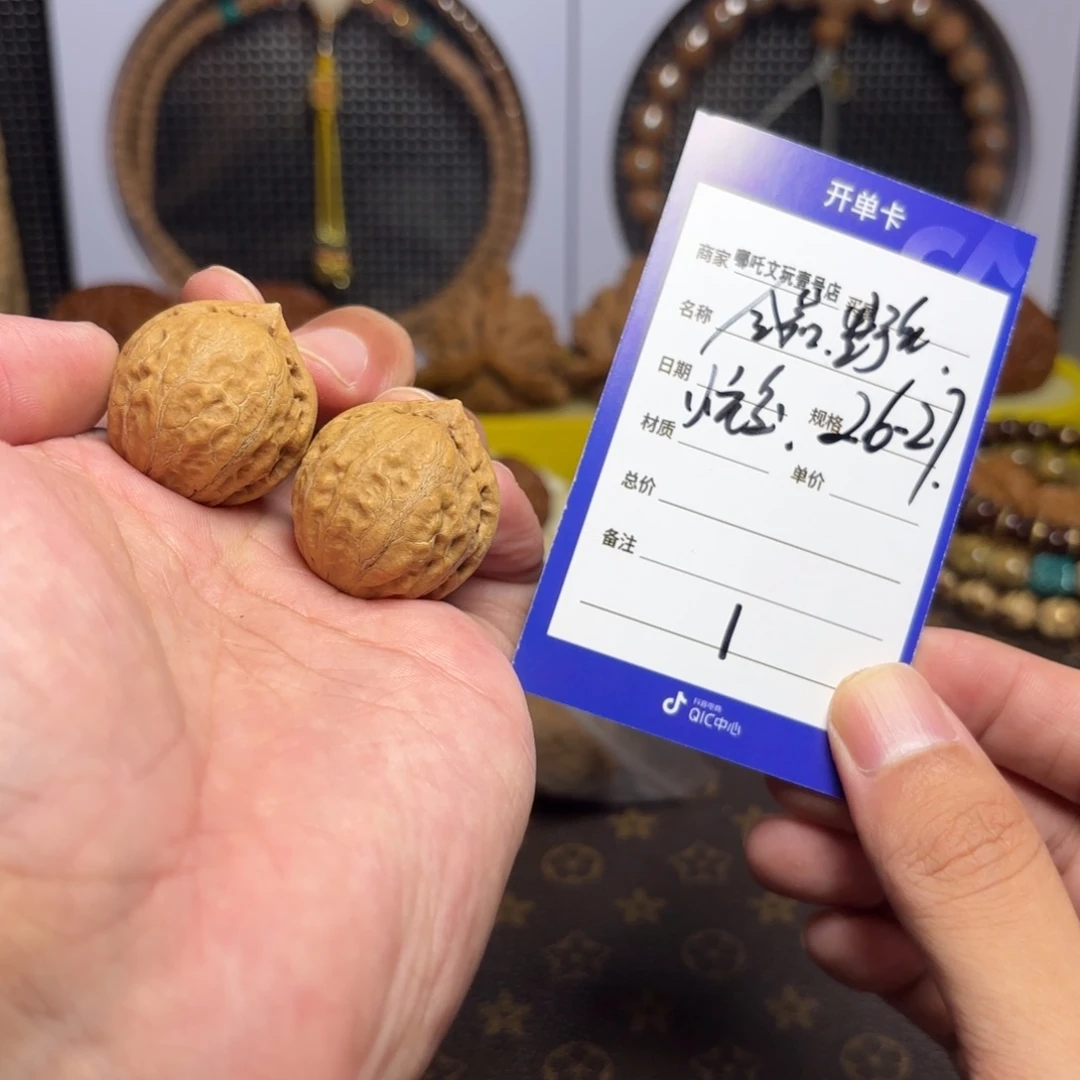 开单卡
商家 哪吒文玩壹号店 买
名称
日期 规格 26-27
材质 单价
总价
备注
1
抖音电商
QIC中心